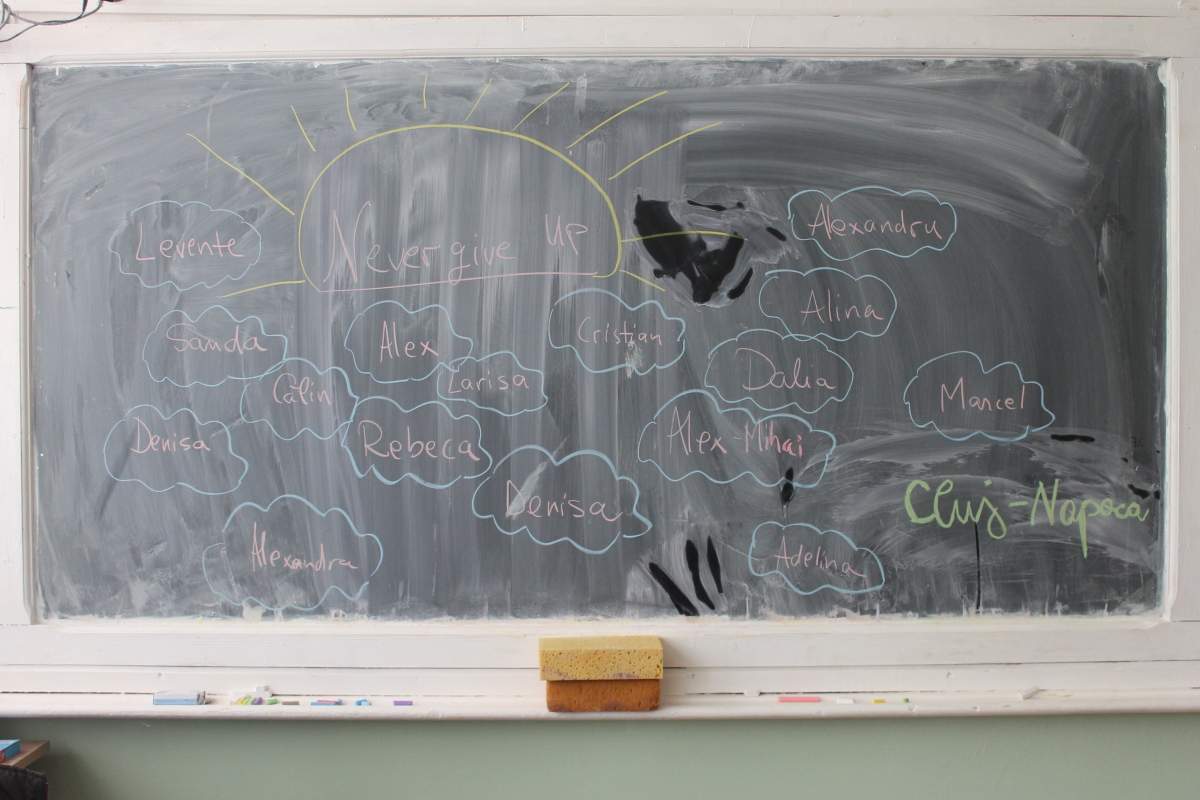 Never give Up
Levente
Alexandru
Alina
Sanda
Alex
Cristian
Larisa
Dalia
Călin
Marcel
Denisa
Rebeca
Alex-Mihai
Denisa
Cluj-Napoca
Alexandra
Adelina